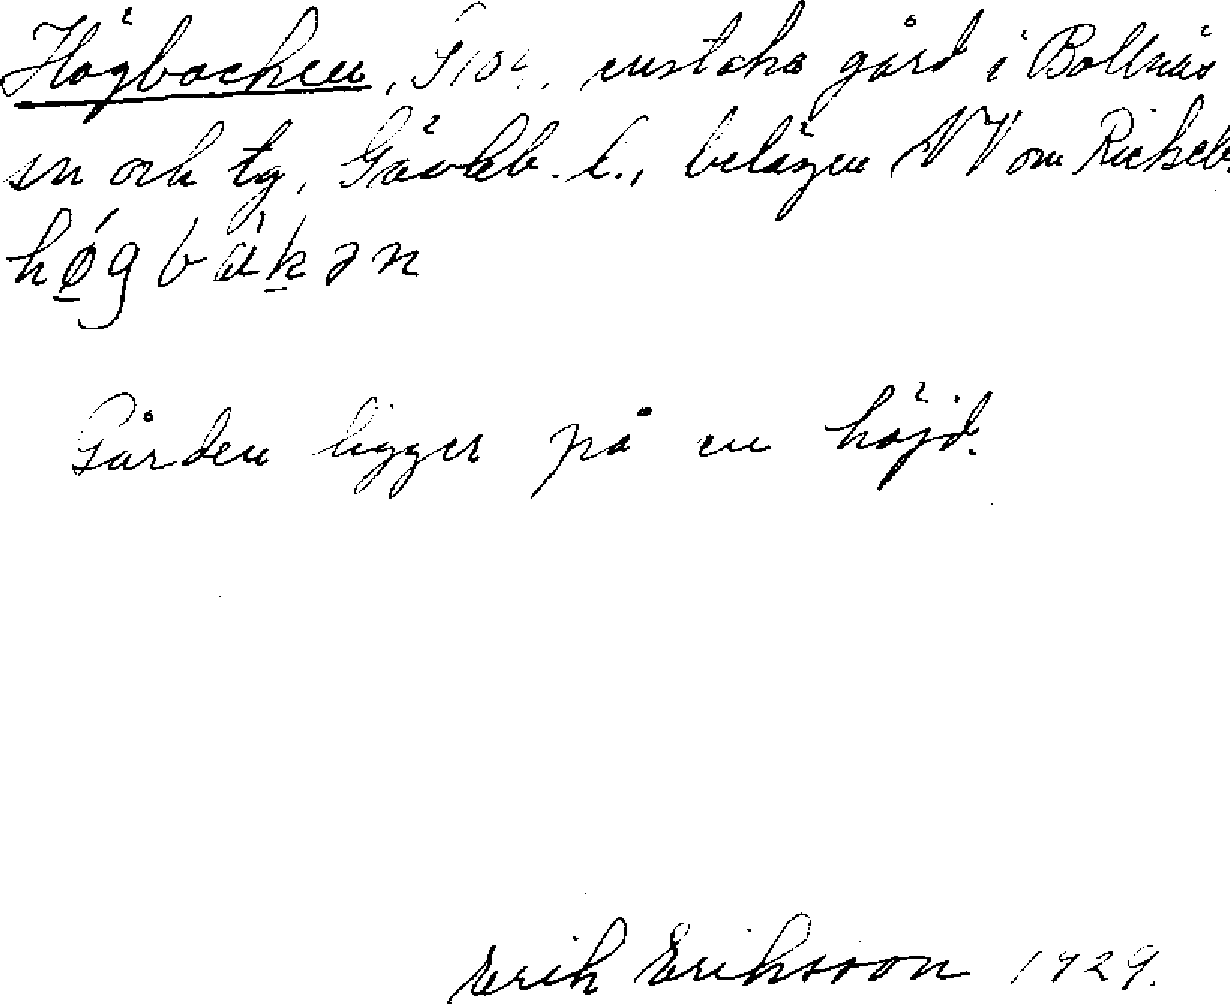 Högbacken, S104, enstaka gård i Bollnäs
sn och tg, Gävleb. l., belägen NV om
høgbakən
Gården ligger på en höjd.
Erik Eriksson 1929.